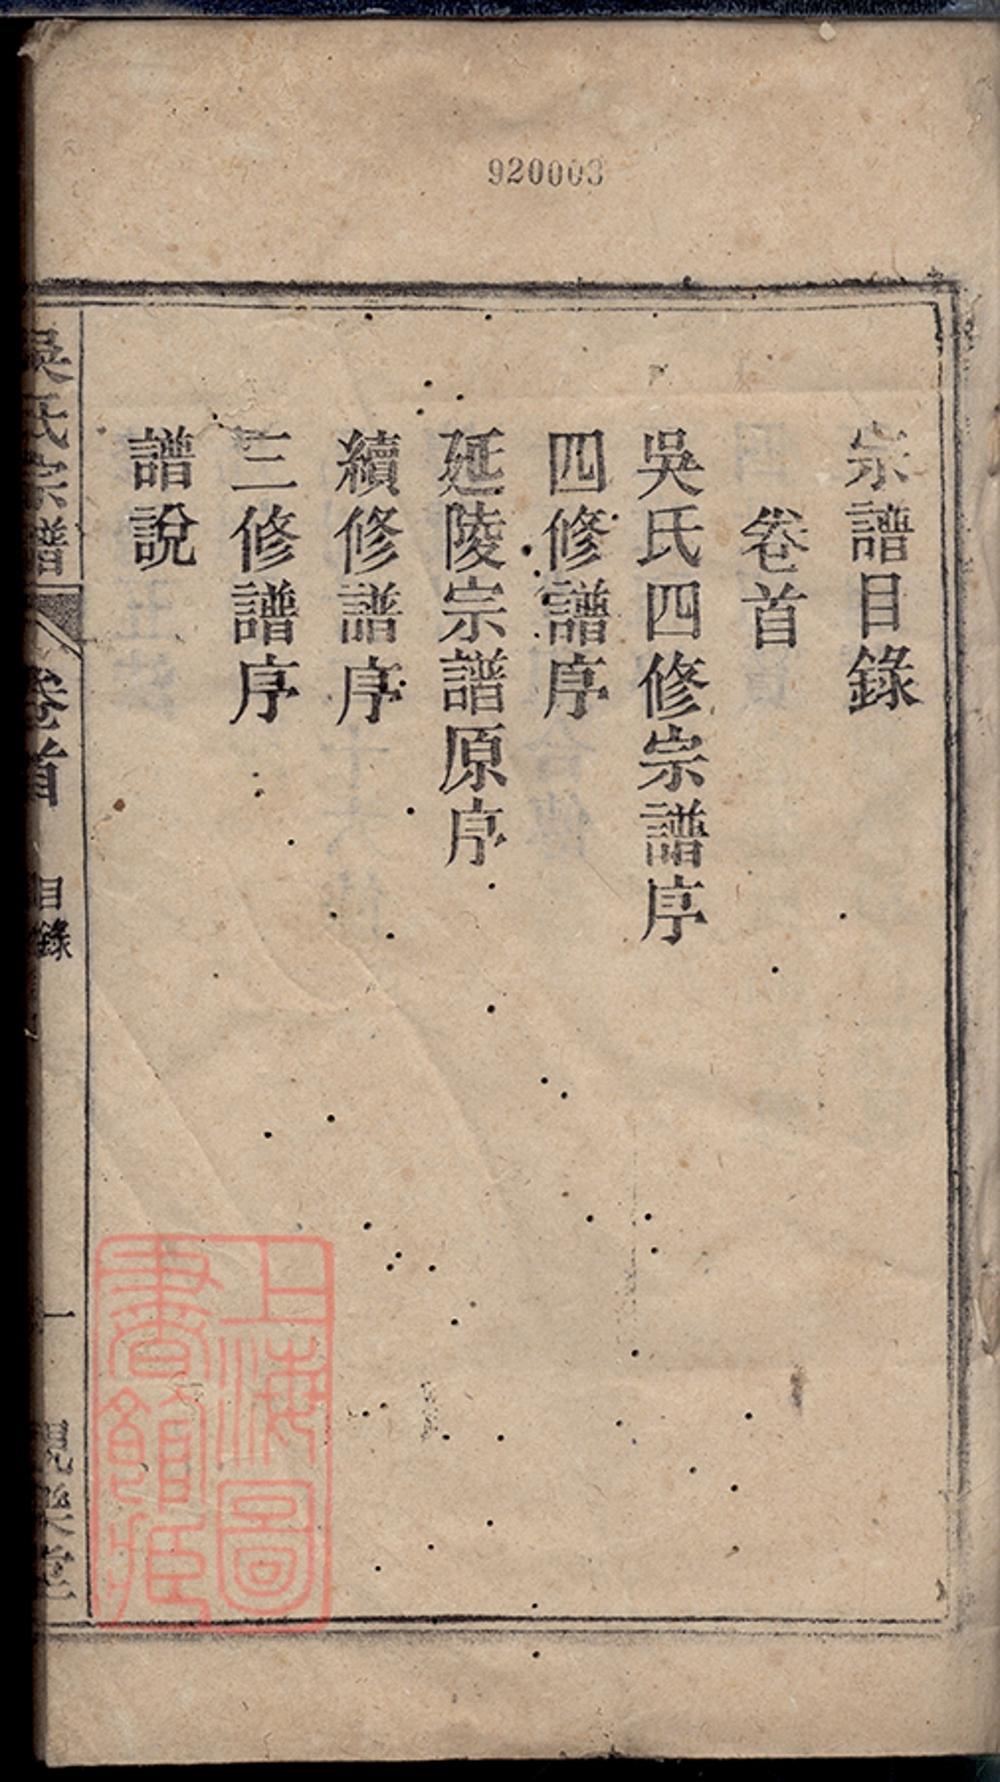 920003
宗譜目錄
卷首
吳氏四修宗譜序
四修譜序
延陵宗譜原序
續修譜序
三修譜序
譜說
吳氏宗譜
卷首
目錄
一
上海圖
書館藏